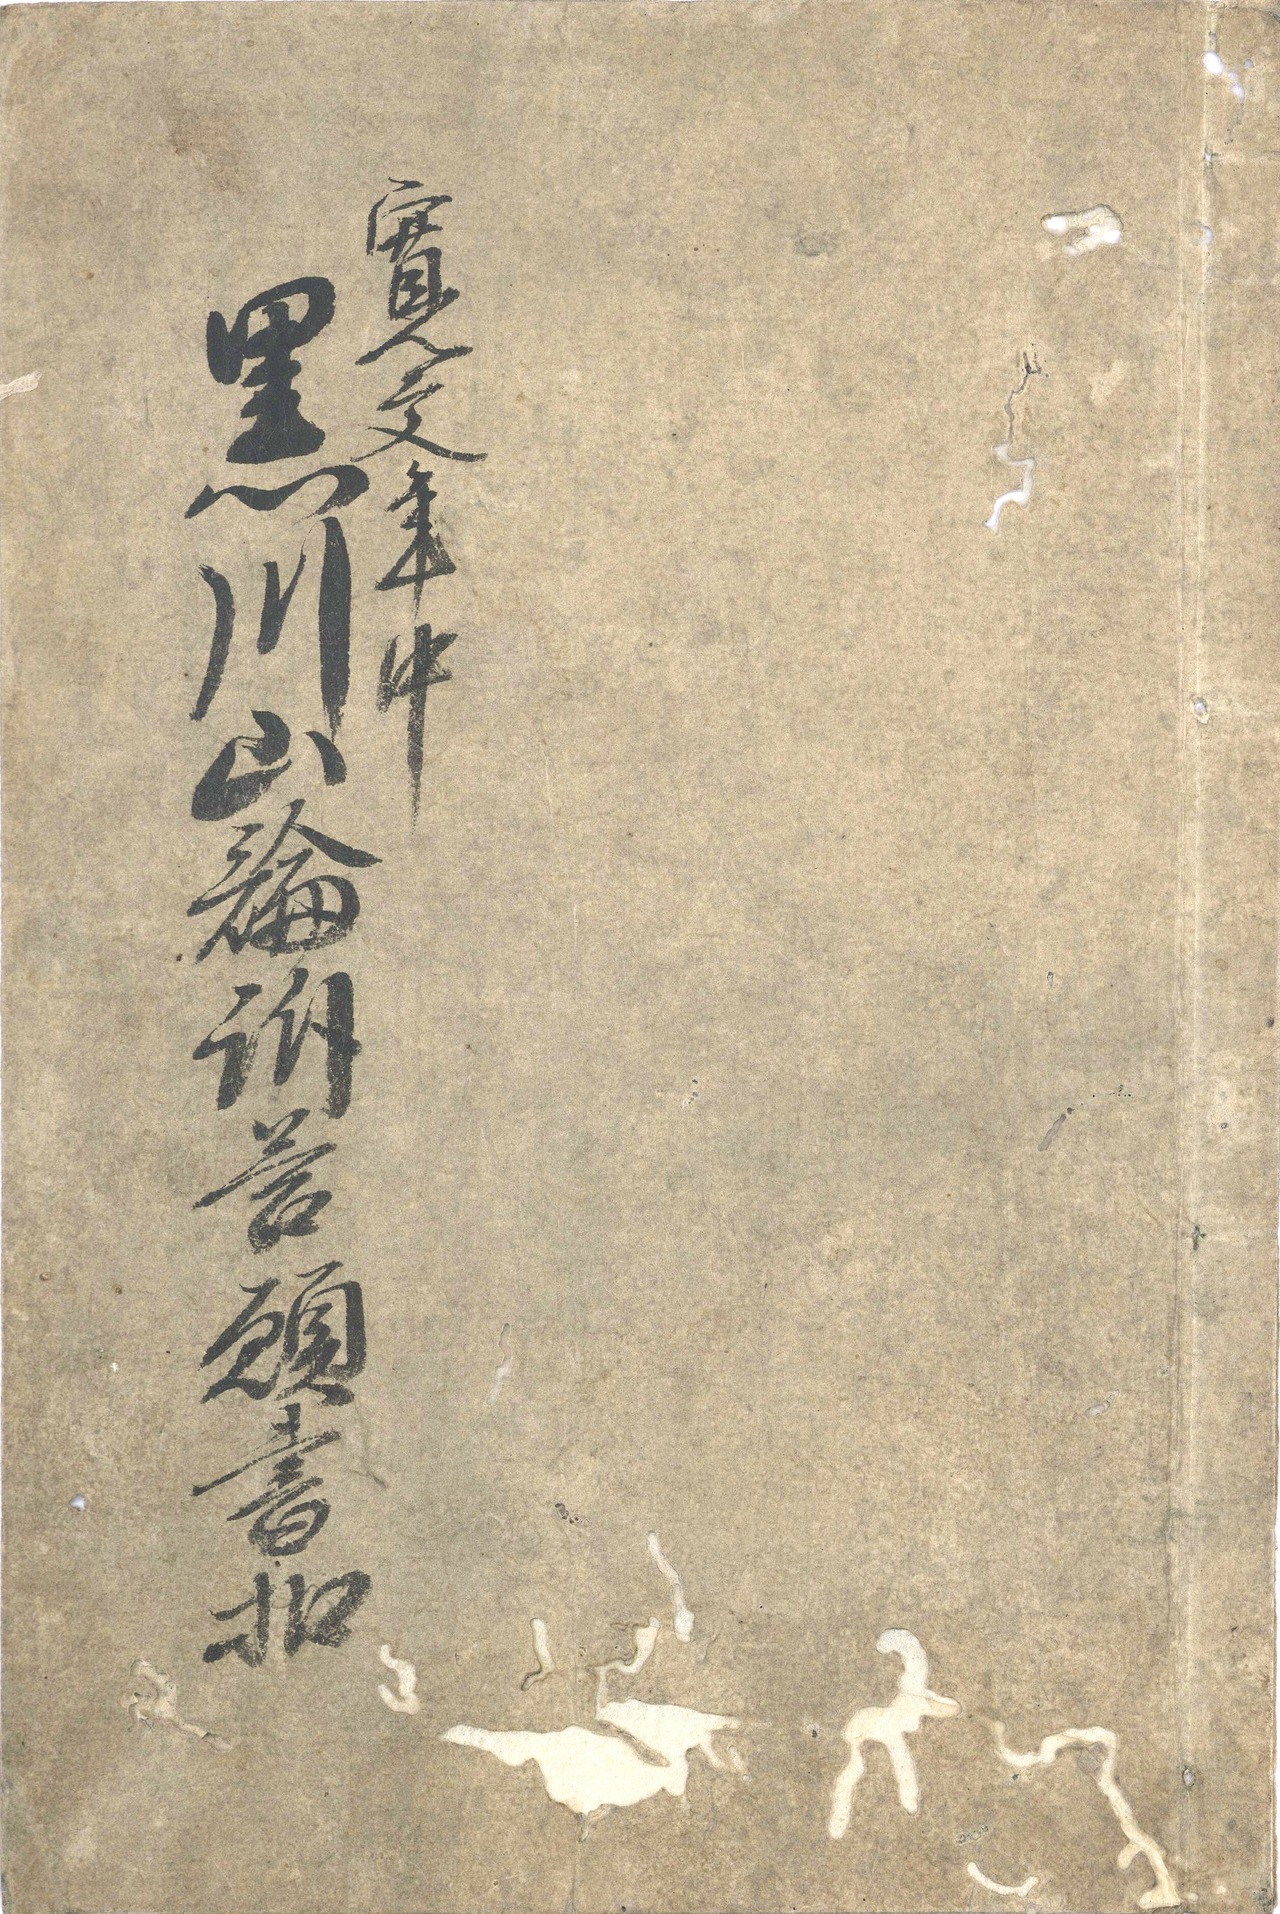 寛文年中
黒川山論訴答願書扣